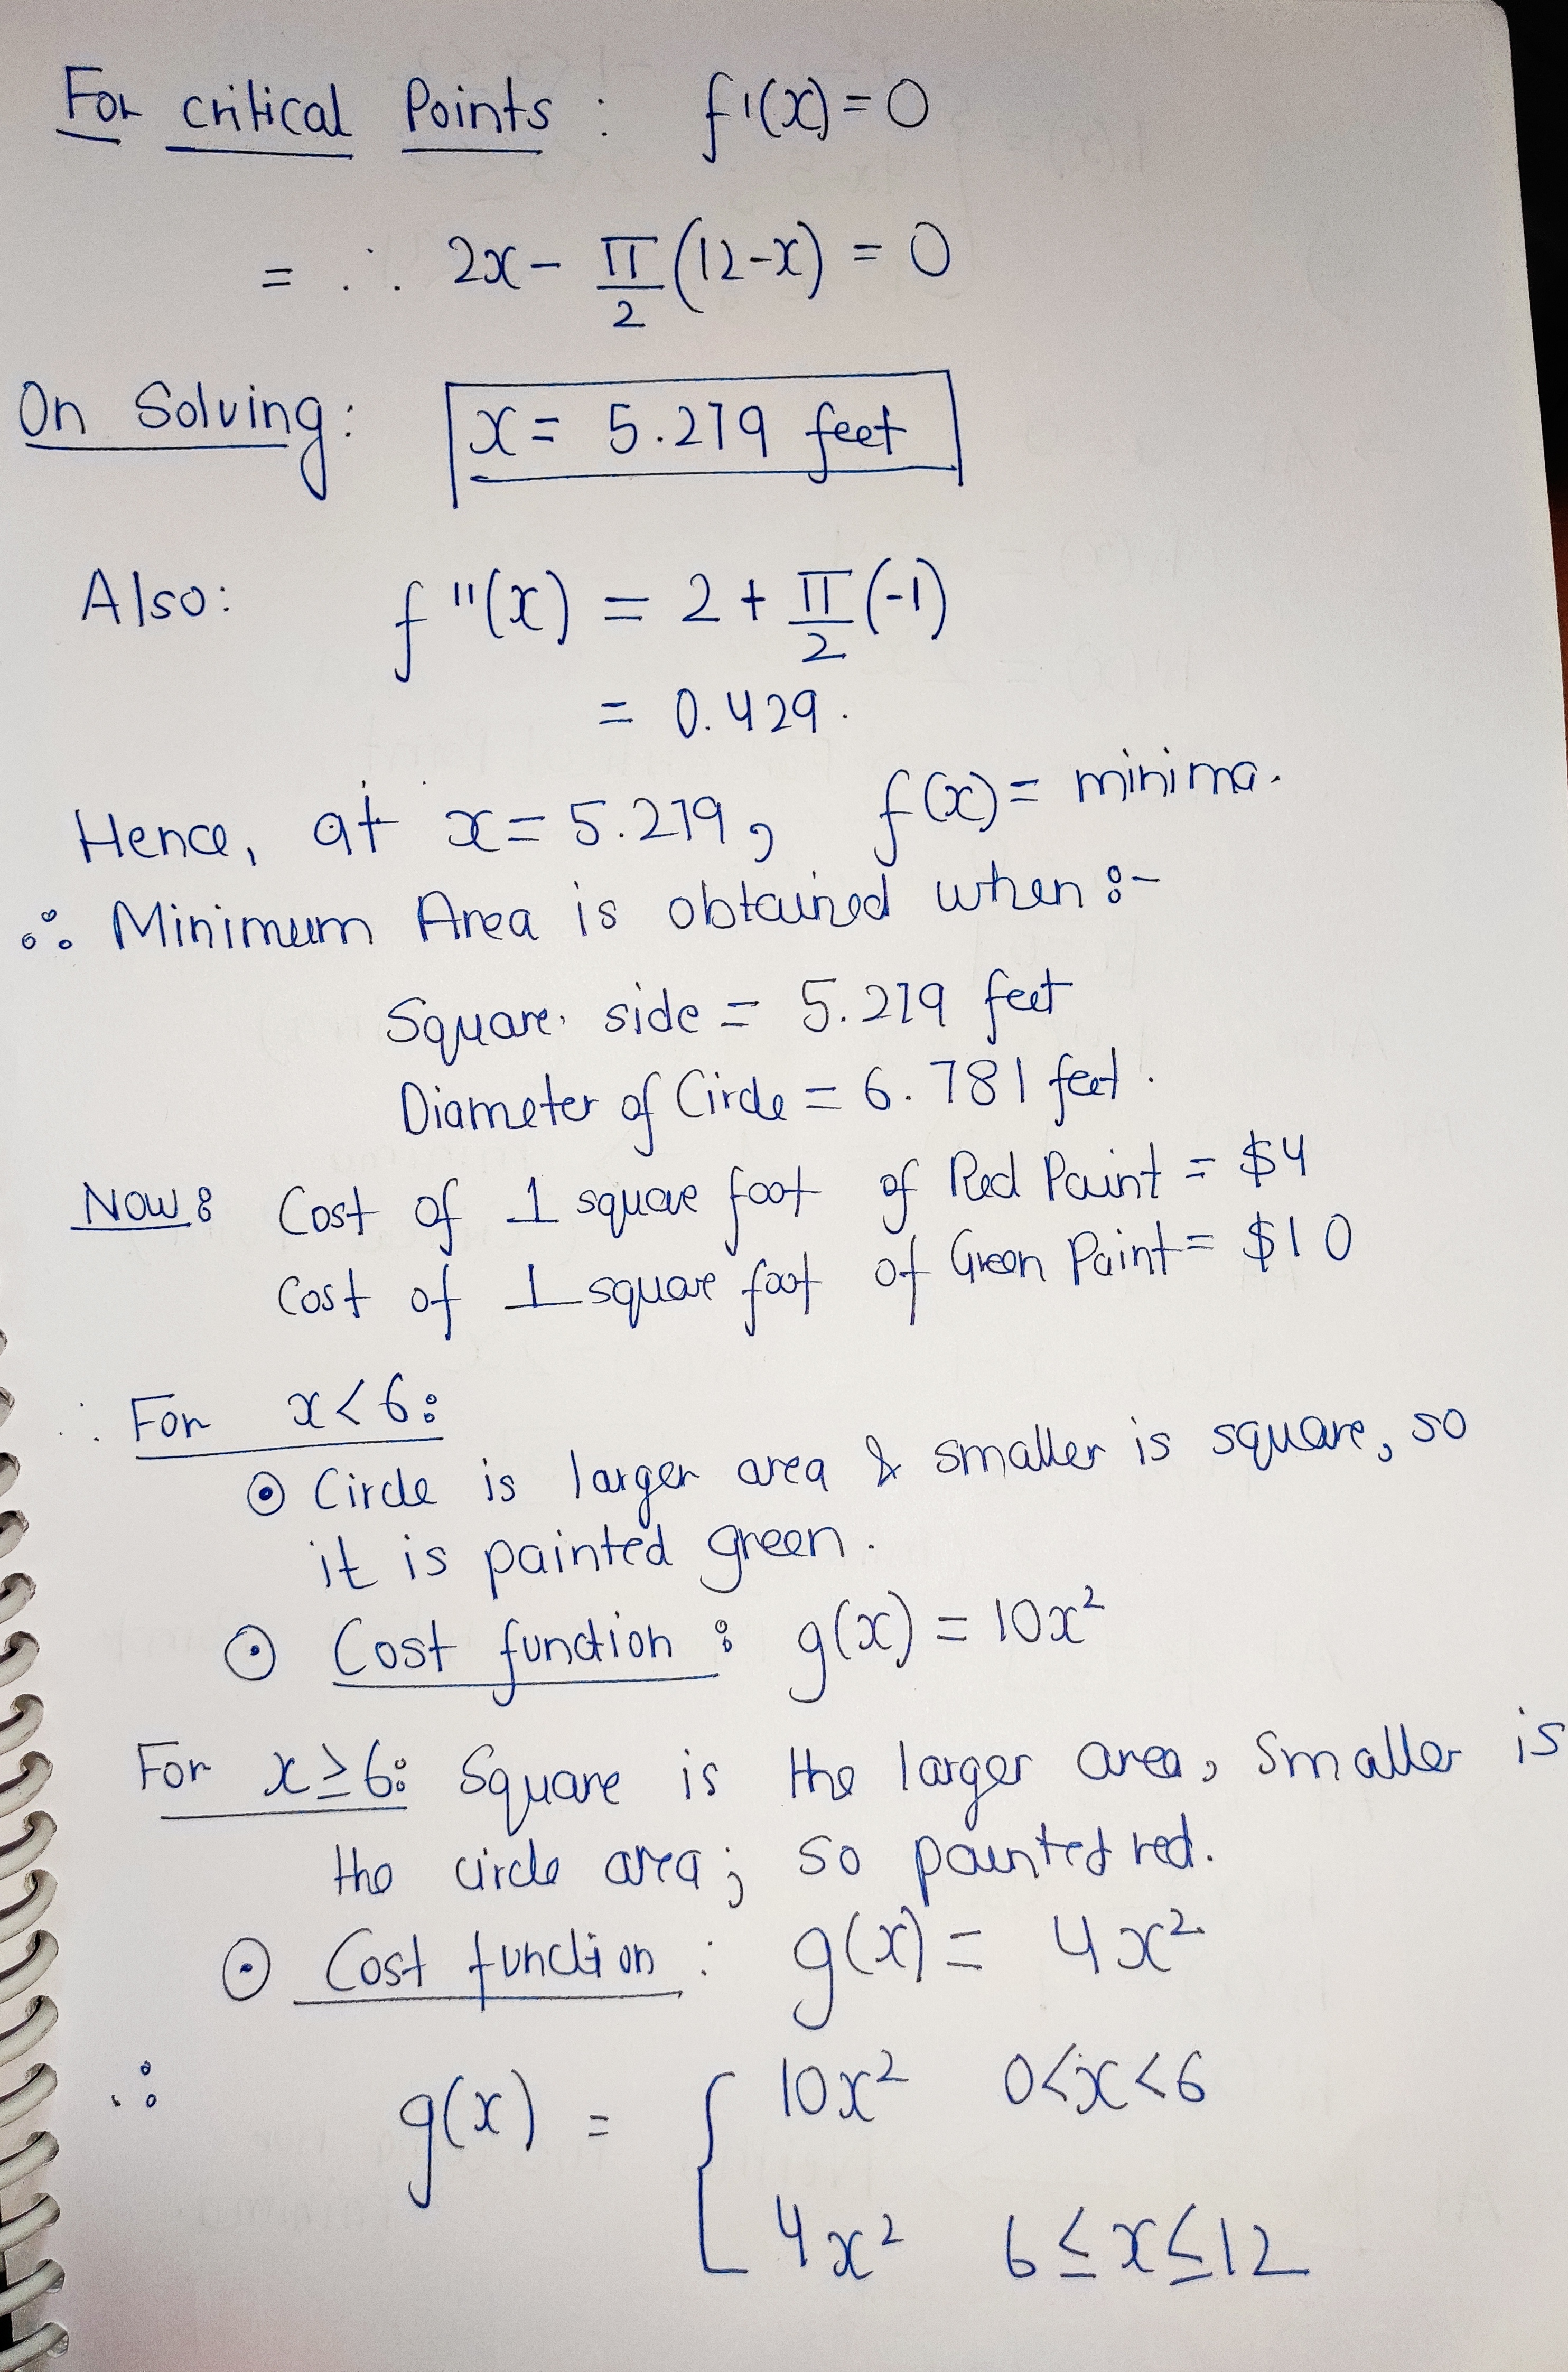 For critical Points : f'(x) = 0
= ∴ 2x - π/2 (12-x) = 0
On Solving: x = 5.279 feet
Also: f''(x) = 2 + π/2 (-1)
= 0.429.
Hence, at x = 5.279, f(x) = minima.
∴ Minimum Area is obtained when :-
Square side = 5.279 feet
Diameter of Circle = 6.781 feet.
Now: Cost of 1 square foot of Red Paint = $4
Cost of 1 square foot of Green Paint = $10
∴ For x < 6:
⊙ Circle is larger area & smaller is square, so
it is painted green.
⊙ Cost function : g(x) = 10x²
For x ≥ 6: Square is the larger area, smaller is
the circle area; so painted red.
⊙ Cost function : g(x) = 4x²
∴ g(x) = { 10x² 0<x<6
4x² 6≤x≤12